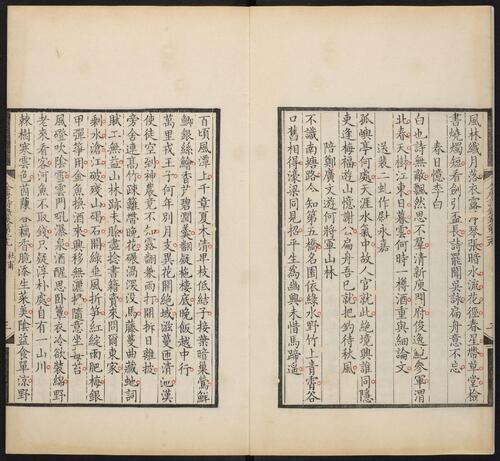 風林纖月落衣露淨琴張暗水流花徑春星帶草堂檢
書燒燭短看劍引盃長詩罷聞吳詠扁舟意不忘
春日憶李白
白也詩無敵飄然思不羣清新庾開府俊逸鮑參軍渭
北春天樹江東日暮雲何時一樽酒重與細論文
送裴二虬作尉永嘉
孤嶼亭何處天涯水氣中故人官就此絕境興誰同隱
吏逢梅福遊山憶謝公扁舟吾已就把釣待秋風
陪鄭廣文遊何將軍山林
不識南塘路今知第五橋名園依綠水野竹上青霄谷
口舊相得濠梁同見招平生爲幽興未惜馬蹄遙
百頃風潭上千章夏木清卑枝低結子接葉暗巢鶯鮮
鯽銀絲鱠香芹碧澗羹翻疑柂樓底晚飯越中行
萬里戎王子何年別月支異花開絕域滋蔓匝清池漢
使徒空到神農竟不知露翻兼雨打開拆日離披
旁舍連高竹疎籬帶晚花碾渦深沒馬藤蔓曲藏蛇詞
賦工無益山林跡未賒盡捻書籍賣來問爾東家
剩水滄江破殘山碣石開綠垂風折笋紅綻雨肥梅銀
甲彈箏用金魚換酒來興移無灑掃隨意坐莓苔
風磴吹陰雪雲門吼瀑泉酒醒思臥簟衣冷欲裝綿野
老來看客河魚不取錢只疑淳朴處自有一山川
棘樹寒雲色茵蔯春藕香脆添生菜美陰益食單涼野
杜甫